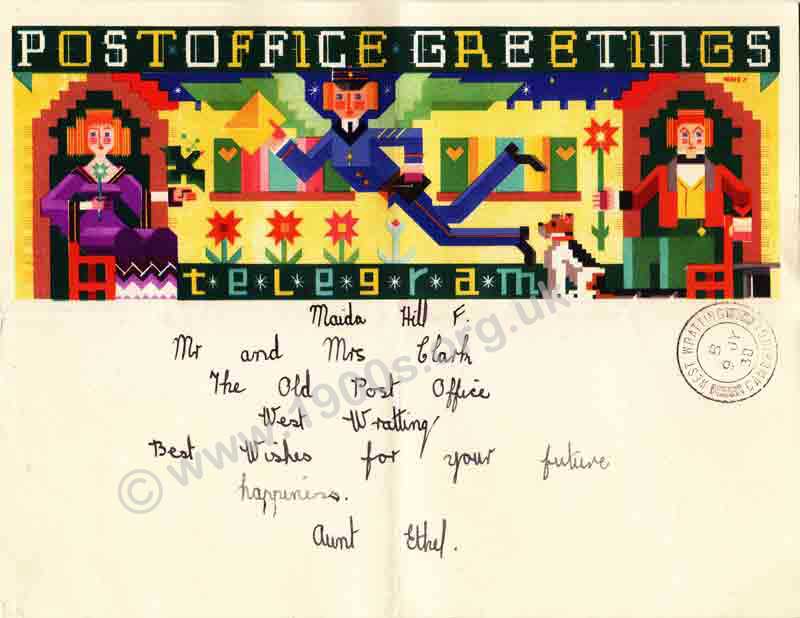 POST OFFICE GREETINGS
telegram
Maida Hill F.
Mr and Mrs Clark
The Old Post Office
West Wratting
Best Wishes for your future
happiness.
Aunt Ethel.
WEST WRATTING
© www.1900s.org.uk